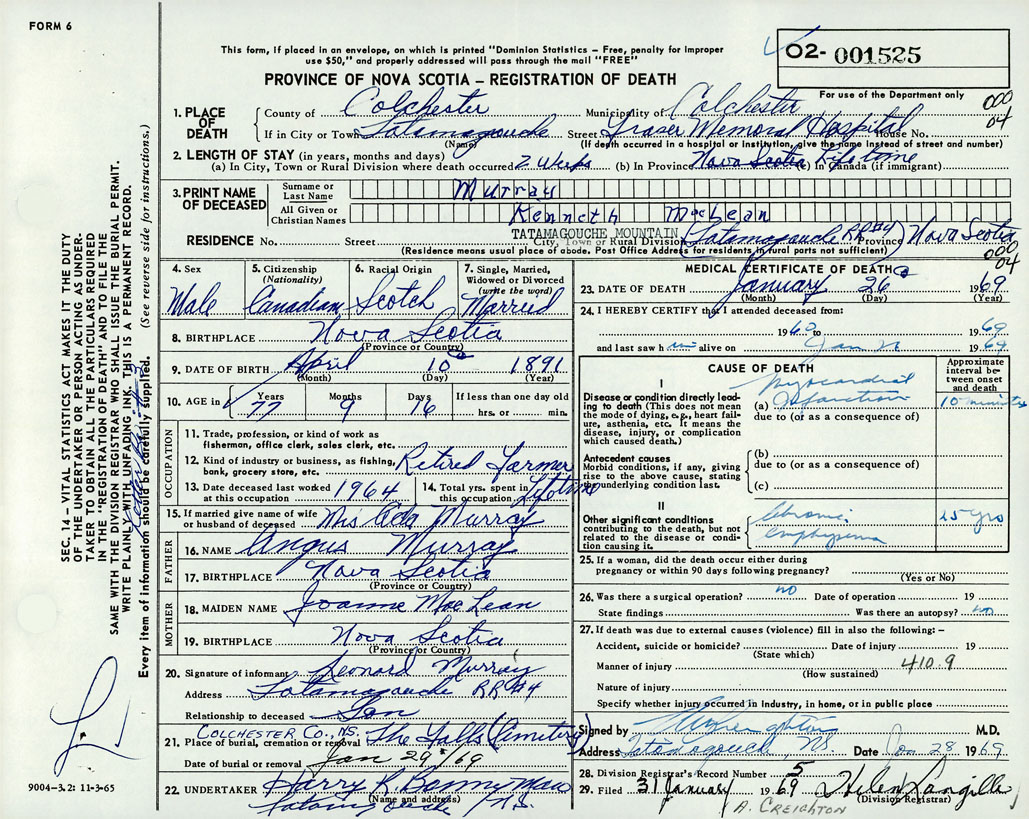 FORM 6
This form, if placed in an envelope, on which is printed "Dominion Statistics – Free, penalty for improper
use $50," and properly addressed will pass through the mail "FREE"
02- 001525
PROVINCE OF NOVA SCOTIA – REGISTRATION OF DEATH
For use of the Department only
000
04
1. PLACE OF DEATH
County of Colchester Municipality of Colchester
If in City or Town Tatamagouche Street Fraser Memorial Hospital House No.
(Name) (If death occurred in a hospital or institution, give the name instead of street and number)
2. LENGTH OF STAY (in years, months and days)
(a) In City, Town or Rural Division where death occurred 2 Weeks (b) In Province Nova Scotia Lifetime (c) In Canada (if immigrant)
3. PRINT NAME OF DECEASED
Surname or Last Name Murray
All Given or Christian Names Kenneth MacLean
TATAMAGOUCHE MOUNTAIN
RESIDENCE No. Street City, Town or Rural Division (Tatamagouche RR#4) Province Nova Scotia
(Residence means usual place of abode. Post Office Address for residents in rural parts not sufficient)
000
04
4. Sex Male
5. Citizenship (Nationality) Canadian
6. Racial Origin Scotch
7. Single, Married, Widowed or Divorced (write the word) Married
8. BIRTHPLACE Nova Scotia
(Province or Country)
9. DATE OF BIRTH April 10 1891
(Month) (Day) (Year)
10. AGE in Years Months Days If less than one day old
77 9 16 hrs. or min.
OCCUPATION
11. Trade, profession, or kind of work as
fisherman, office clerk, sales clerk, etc.
12. Kind of industry or business, as fishing,
bank, grocery store, etc. Retired Farmer
13. Date deceased last worked at this occupation 1964
14. Total yrs. spent in this occupation Lifetime
15. If married give name of wife
or husband of deceased Mrs Ada Murray
FATHER
16. NAME Angus Murray
17. BIRTHPLACE Nova Scotia
(Province or Country)
MOTHER
18. MAIDEN NAME Joanne MacLean
19. BIRTHPLACE Nova Scotia
(Province or Country)
20. Signature of informant Leonard Murray
Address Tatamagouche RR#4
Relationship to deceased Son
COLCHESTER CO., N.S.
21. Place of burial, cremation or removal The Falls (Cemetery)
Date of burial or removal Jan 29/69
22. UNDERTAKER Harry R. Bonnyman
(Name and address)
Tatamagouche N.S.
MEDICAL CERTIFICATE OF DEATH
23. DATE OF DEATH January 26 1969
(Month) (Day) (Year)
24. I HEREBY CERTIFY that I attended deceased from:
19 to 1969
and last saw h im alive on Jan 1969
CAUSE OF DEATH
Approximate interval between onset and death
I
Disease or condition directly leading to death (This does not mean the mode of dying, e.g., heart failure, asthenia, etc. It means the disease, injury, or complication which caused death.)
(a) Myocardial Infarction 10 minutes
due to (or as a consequence of)
Antecedent causes
Morbid conditions, if any, giving rise to the above cause, stating the underlying condition last.
(b)
due to (or as a consequence of)
(c)
II
Other significant conditions
contributing to the death, but not related to the disease or condition causing it.
Chronic emphysema 25 yrs
25. If a woman, did the death occur either during
pregnancy or within 90 days following pregnancy?
(Yes or No)
26. Was there a surgical operation? no Date of operation 19
State findings Was there an autopsy? no
27. If death was due to external causes (violence) fill in also the following: –
Accident, suicide or homicide? Date of injury 19
(State which)
410.9
Manner of injury
(How sustained)
Nature of injury
Specify whether injury occurred in Industry, in home, or in public place
Signed by M.D.
Address Tatamagouche NS Date Jan 28 1969
28. Division Registrar's Record Number 5
29. Filed 31 January 1969 Helen Langille
(Division Registrar)
A. CREIGHTON
SEC. 14 – VITAL STATISTICS ACT MAKES IT THE DUTY
OF THE UNDERTAKER OR PERSON ACTING AS UNDER-
TAKER TO OBTAIN ALL THE PARTICULARS REQUIRED
IN THE "REGISTRATION OF DEATH" AND TO FILE THE
SAME WITH THE DIVISION REGISTRAR WHO SHALL ISSUE THE BURIAL PERMIT.
WRITE PLAINLY WITH UNFADING INK. THIS IS A PERMANENT RECORD.
Every item of information should be carefully supplied. (See reverse side for instructions.)
9004-3.2: 11-3-65